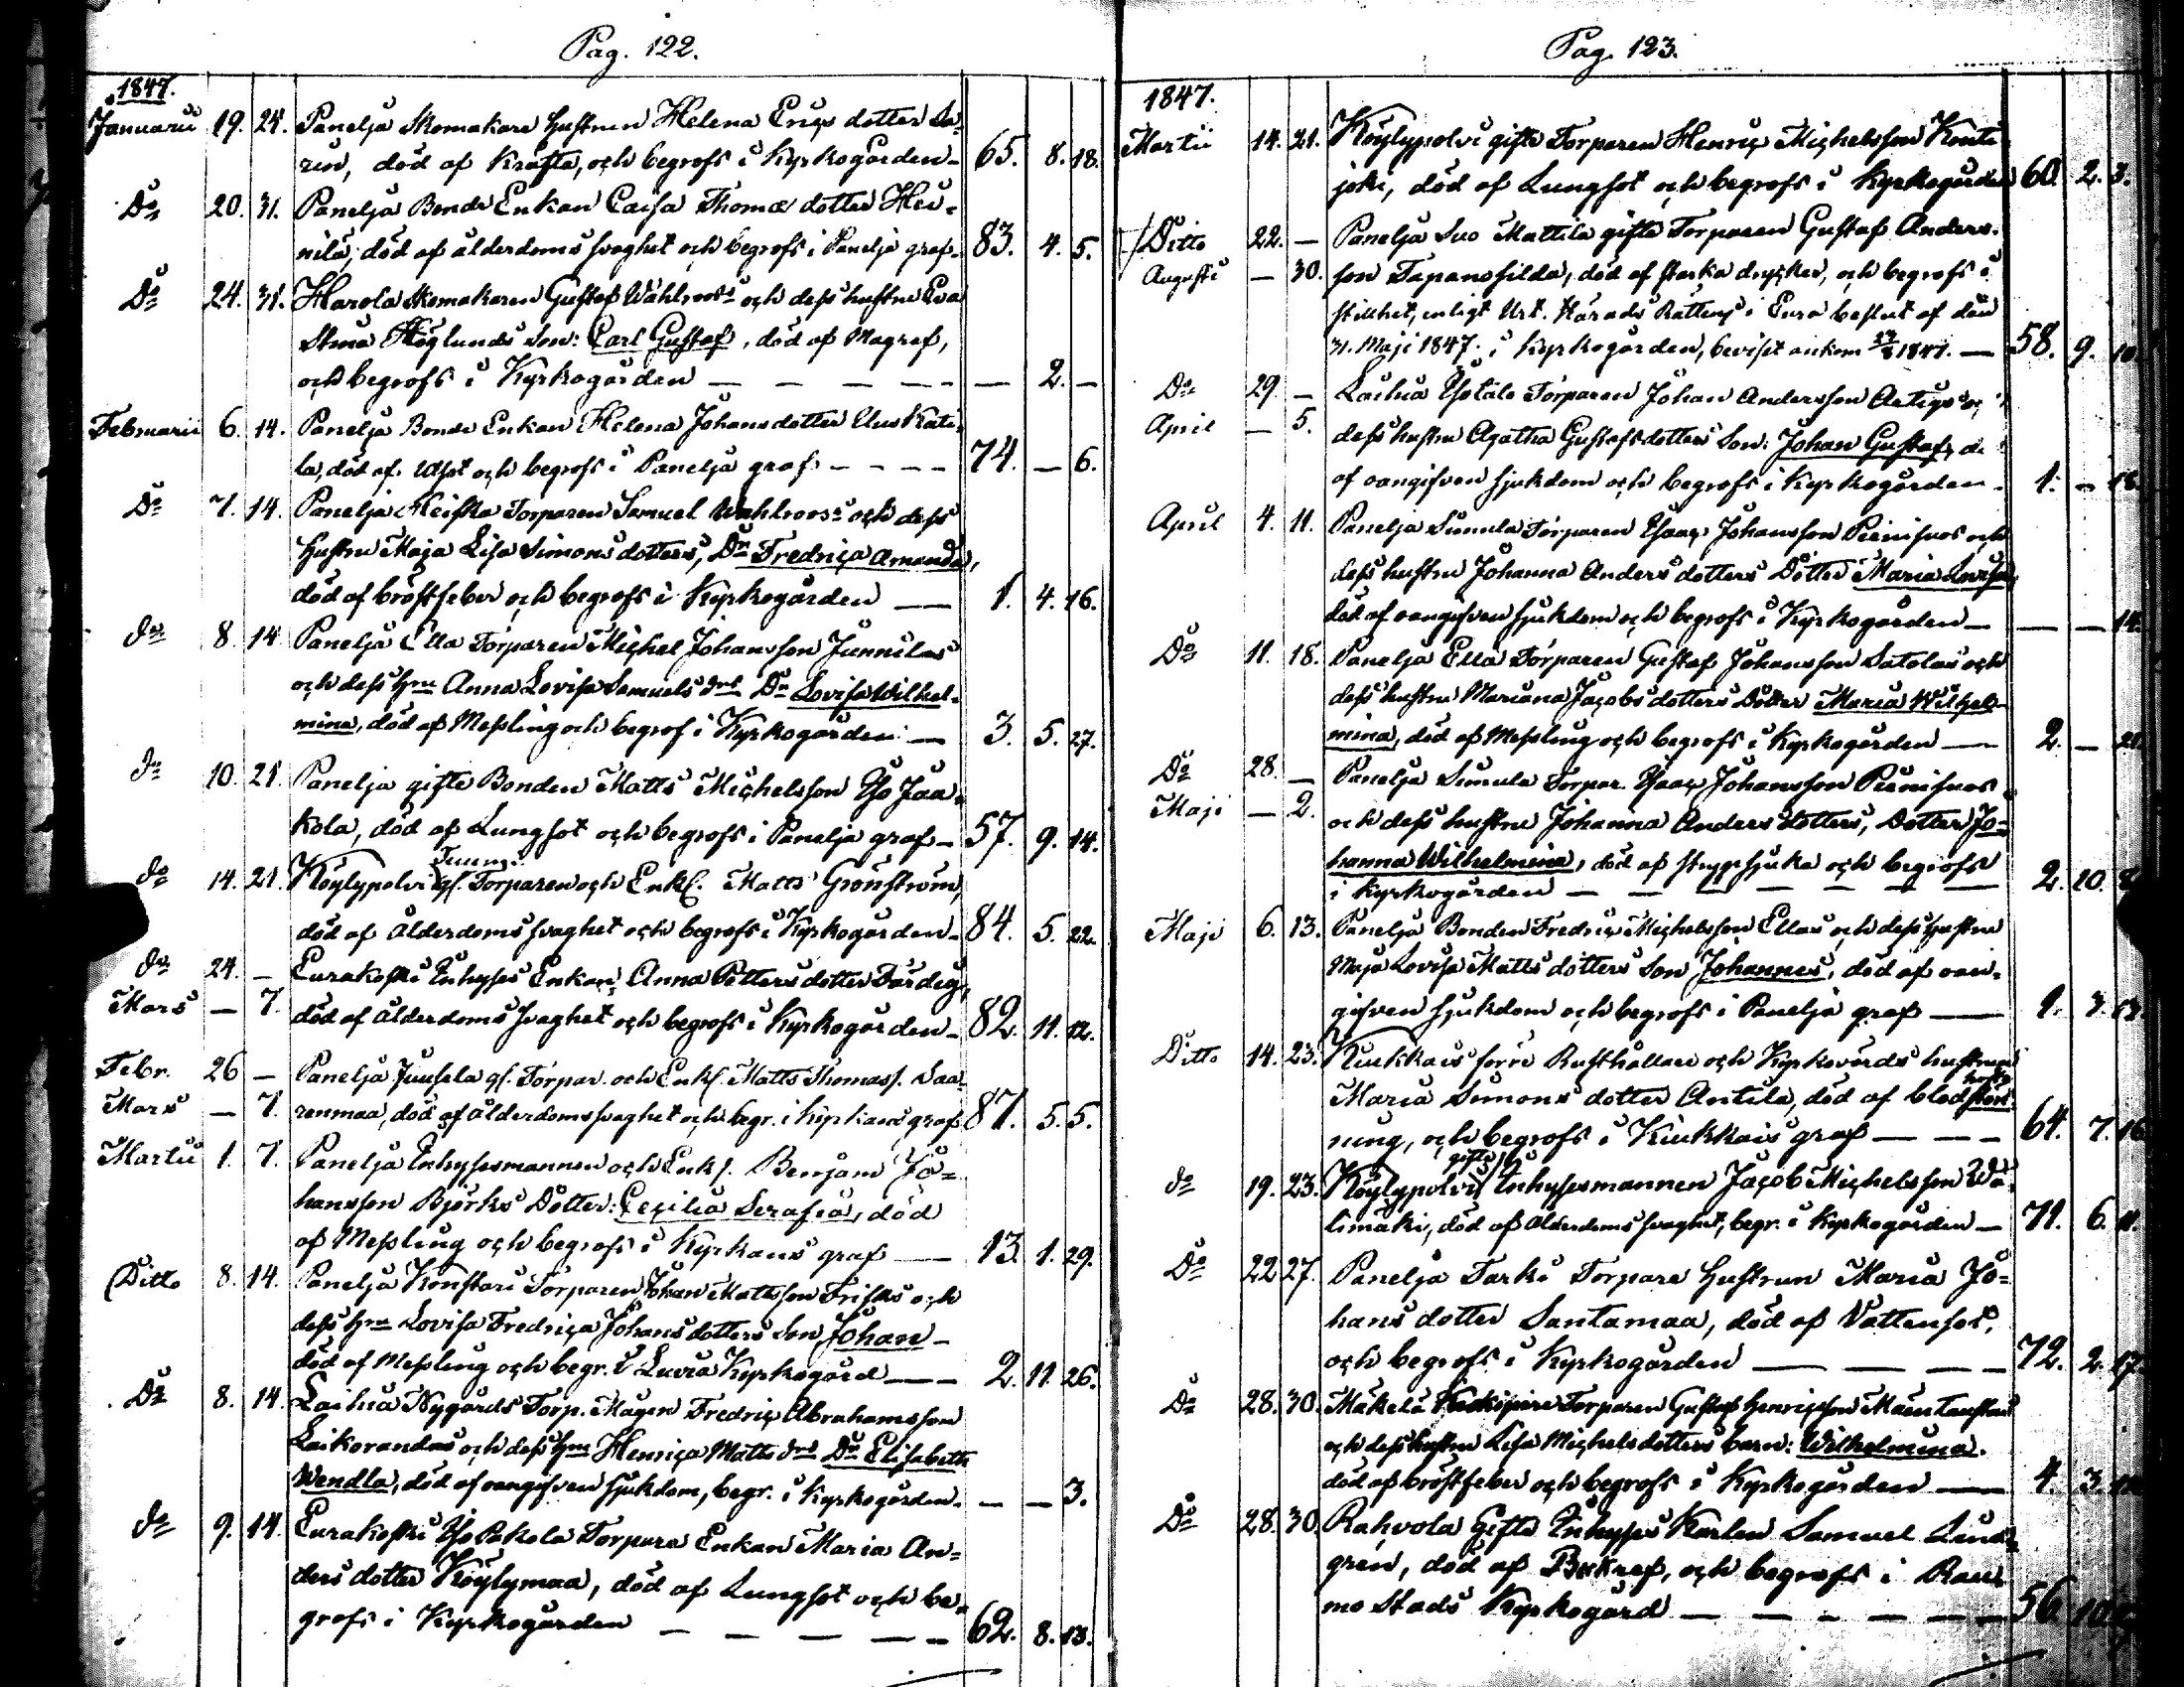 Pag. 122.
1847.
Januarii 19. 24. Panelja Skomakare hustrun Helena Erics dotter Sa-
rin, död af Kräfta, och begrofs i Kyrkogården 65. 8. 18.
Do 20. 31. Panelja Bonde Enkan Caisa Thomæ dotter Hei-
nilä, död af ålderdoms svaghet och begrofs i Panelja graf 83. 4. 5.
Do 24. 31. Harola Skomakaren Gustaf Wahlroos's och dess hustru Eva
Stina Höglunds Son: Carl Gustaf, död af Magref,
och begrofs i Kyrkogården — 2. —
Februarii 6. 14. Panelja Bonde Enkan Helena Johans dotter
la, död af och begrofs i Panelja graf 74. — 6.
Do 7. 14. Panelja Torparen Samuel Wahlroos's och dess
hustru Maja Lisa Simons dotters, Dr Fredrica Amanda,
död af bröstfeber och begrofs i Kyrkogården — 1. 4. 16.
do 8. 14 Panelja Ella Torparen Michel Johansson Junnilas
och dess hru Anna Lovisa Samuels drs Dr Lovisa Wilhel-
mina, död af Messling och begrof i Kyrkogården — 3. 5. 27.
do 10. 21 Panelja gifte Bonden Matts Michelsson Yso Jaa-
kola, död af Lungsot och begrofs i Panelja graf 57. 9. 14.
do 14. 21. Köylypolvi gf. Torparen och Enkl. Matts Grönström,
död af ålderdoms svaghet och begrofs i Kyrkogården 84. 5. 22.
do 24. — Eurakoski Inhyses Enkan Anna Petters dotter Färdig,
Mars — 7. död af ålderdoms svaghet och begrofs i Kyrkogården 82. 11. 12.
Febr. 26 — Panelja Juusela gf. Torpar. och Enkl. Matts Thomass. Saa-
Mars — 7. renmaa, död af ålderdoms svaghet och begr. i Kyrkans graf 87. 5. 5.
Martii 1. 7. Panelja Inhysesmannen och Enkl. Benjam Jo-
hansson Björks Dotter: Cecilia Serafia, död
af Messling och begrofs i Kyrkans graf — 13. 1. 29.
Ditto 8. 14. Panelja Konstari Torparen Johan Mattsson Frisks och
dess hru Lovisa Fredrica Johans dotters Son Johan
död af Messling och begr. i Luvia Kyrkogård — 2. 11. 26.
Do 8. 14. Laihia Nygårds Torp. Mågen Fredric Abrahamsson
Laikorandas och dess hru Henrica Matts drs Dr Elisabeth
Wendla, död af oangifven sjukdom, begr. i Kyrkogården. — — 3.
do 9. 14. Eurakoski Yso Pakola Torpare Enkan Maria An-
ders dotter Köylymaa, död af Lungsot och be-
grofs i Kyrkogården — 62. 8. 13.
Pag. 123.
1847.
Martii 14. 21. Köylypolvi gifte Torparen Henric Michelsson Konti
joki, död af Lungsot och begrofs i Kyrkogården 60. 2. 3.
Ditto 22. — Panelja Suo Mattila gifte Torparen Gustaf Anders-
Augusti — 30. son Tapanssilda, död af starka drycker, och begrofs i
stillhet, enligt Urt. Härads Rättens i Eura beslut af den
31. Maji 1847. i Kyrkogården, beviset ankom 1847. — 58. 9. 10
Do 29. — Laihia Ysotalo Torparen Johan Andersson
April — 5. dess hustru Agatha Gustafs dotters Son: Johan Gustaf, d.
af oangifven sjukdom och begrofs i Kyrkogården. 1. — 18.
April 4. 11. Panelja Simula Torparen Isaac Johansson och
dess hustru Johanna Anders dotters Dotter Maria Lovisa,
död af oangifven sjukdom och begrofs i Kyrkogården — — — 14.
Do 11. 18. Panelja Ella Torparen Gustaf Johansson Satolas och
dess hustru Mariana Jacobs dotters Dotter Maria Wilhel-
mina, död af Messling och begrofs i Kyrkogården — 2. — 21.
Do 28. — Panelja Simula Torpar. Isaac Johansson
Maji — 2. och dess hustru Johanna Anders dotters, Dotter Jo-
hanna Wilhelmina, död af strypsjuka och begrofs
i Kyrkogården — 2. 10.
Maji 6. 13. Panelja Bonden Fredric Michelsson Ellas och dess hustru
Maja Lovisa Matts dotters Son Johannes, död af oan-
gifven sjukdom och begrofs i Panelja graf — 1. 3. 13
Ditto 14. 23. Kiukkais förre Rusthållare och Kyrkovärds hustrun
Maria Simons dotter Antila, död af blodstört-
ning, och begrofs i Kiukkais graf — 64. 7. 16
do 19. 23. Köylypolvi gifte Inhysesmannen Jacob Michelsson Wä-
limäki, död af ålderdoms svaghet, begr. i Kyrkogården — 71. 6. 11.
Do 22 27. Panelja Tarki Torpare hustrun Maria Jo-
hans dotter Santamaa, död af Vattensot,
och begrofs i Kyrkogården — 72. 2. 17
Do 28. 30. Mäkelä Torparen Gustaf Henricsson
och dess hustru Lisa Michels dotters barn: Wilhelmina.
död af bröstfeber och begrofs i Kyrkogården — 4. 3.
Do 28. 30 Rahvola Gifte Inhyses Karlen Samuel Lind-
gren, död af Bukref, och begrofs i Rau-
mo Stads Kyrkogård — 56. 10.